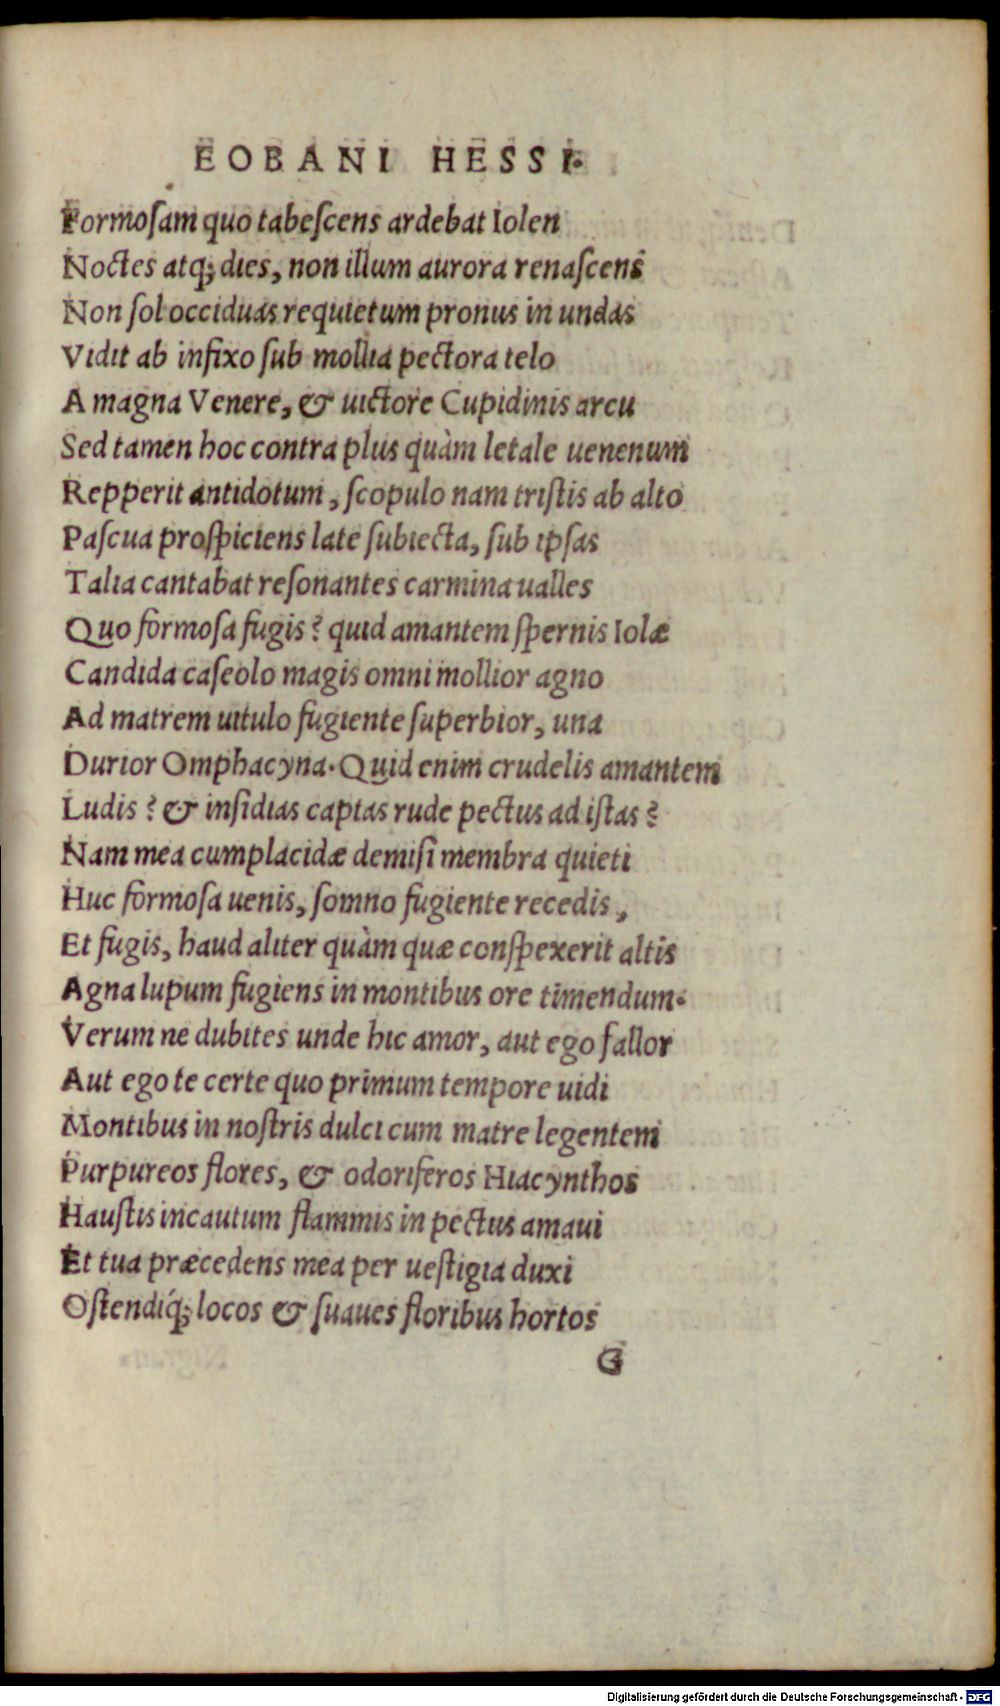 EOBANI HESSI.
Formoſam quo tabeſcens ardebat Iolen
Noctes atq; dies, non illum aurora renaſcens
Non ſol occiduas requietum pronus in undas
Vidit ab infixo ſub mollia pectora telo
A magna Venere, & uictore Cupidinis arcu
Sed tamen hoc contra plus quàm letale uenenum
Repperit antidotum, ſcopulo nam triſtis ab alto
Paſcua proſpiciens late ſubiecta, ſub ipſas
Talia cantabat reſonantes carmina ualles
Quo formoſa fugis? quid amantem ſpernis Iolæ
Candida caſeolo magis omni mollior agno
Ad matrem uitulo fugiente ſuperbior, una
Durior Omphacyna. Quid enim crudelis amantem
Ludis? & inſidias captas rude pectus ad iſtas?
Nam mea cum placidæ demiſi membra quieti
Huc formoſa uenis, ſomno fugiente recedis,
Et fugis, haud aliter quàm quæ conſpexerit altis
Agna lupum fugiens in montibus ore timendum.
Verum ne dubites unde hic amor, aut ego fallor
Aut ego te certe quo primum tempore uidi
Montibus in noſtris dulci cum matre legentem
Purpureos flores, & odoriferos Hiacynthos
Hauſtis incautum flammis in pectus amaui
Et tua præcedens mea per ueſtigia duxi
Oſtendiq́; locos & ſuaues floribus hortos
G
Digitalisierung gefördert durch die Deutsche Forschungsgemeinschaft - DFG